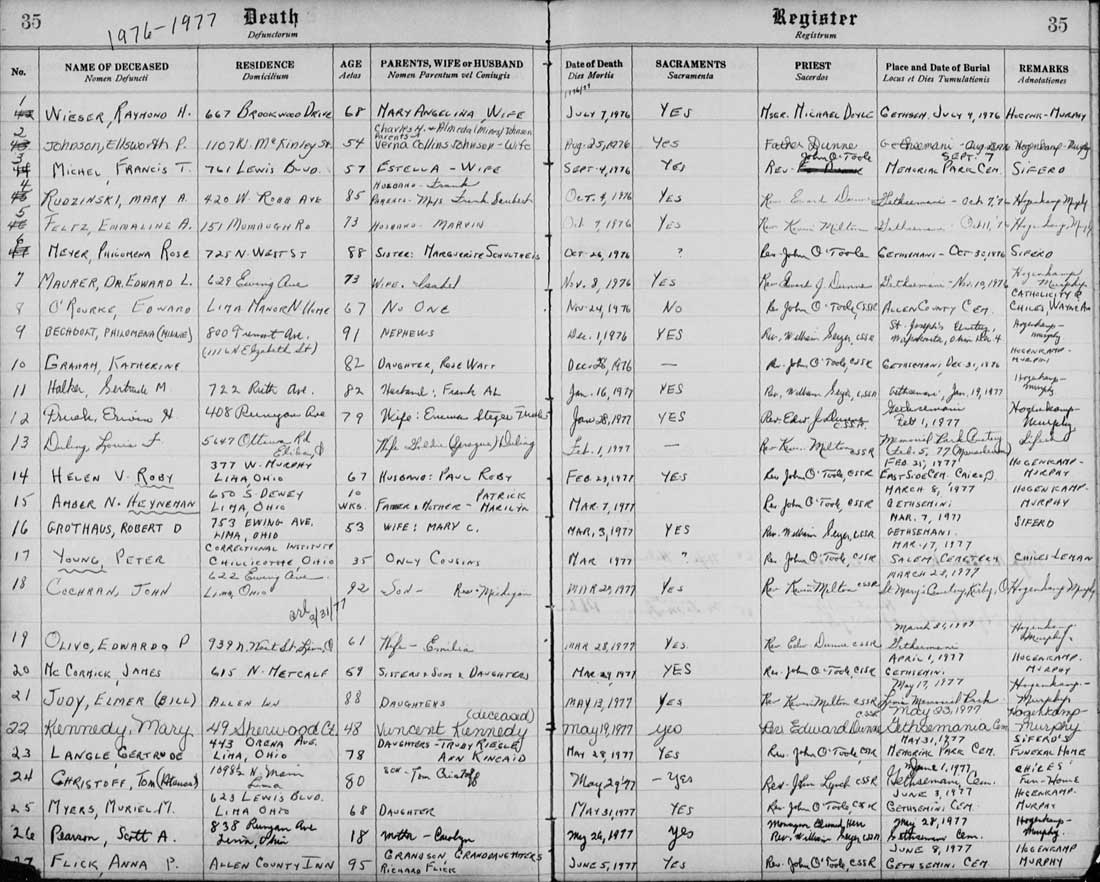 35 1976-1977 Death Register 35
Defunctorum Registrum
No. NAME OF DECEASED RESIDENCE AGE PARENTS, WIFE or HUSBAND Date of Death SACRAMENTS PRIEST Place and Date of Burial REMARKS
Nomen Defuncti Domicilium Aetas Nomen Parentum vel Coniugis Dies Mortis Sacramenta Sacerdos Locus et Dies Tumulationis Adnotationes
1 WIESER, RAYMOND H. 667 BROOKWOOD DRIVE 68 MARY ANGELINA, WIFE JULY 7, 1976 YES MSGR. MICHAEL DOYLE GETHSEM. JULY 9, 1976 HOGENK-MURPHY
Charles H. & Almeda (Mines) Johnson
Parents
2 Johnson, Ellsworth P. 1107 N. McKinley St. 54 Verna Collins Johnson - Wife Aug. 25, 1976 Yes Father Dunne Gethsemani - Aug. 28, 1976 Hogenkamp-Murphy
John O'Toole SEPT. 7
3 MICHEL, FRANCIS T. 761 LEWIS BLVD. 57 ESTELLA - WIFE SEPT. 4, 1976 YES REV. MEMORIAL PARK CEM. SIFERD
HUSBAND - Frank
4 RUDZINSKI, MARY A. 420 W. ROBB AVE 85 PARENTS - M/M Frank Oct. 4, 1976 YES Rev. Edward Dunne Gethsemani - Oct 7, '76 Hogenkamp Murphy
5 FELTZ, EMMALINE A. 151 MUMAUGH RD 73 HUSBAND - MARVIN Oct 9, 1976 YES Rev. Kevin Milton Gethsemani Oct 11, '76 Hogenkamp Murphy
6 MEYER, PHILOMENA ROSE 725 N. WEST ST 88 SISTER: MARGUERITE SCHULTHEIS Oct 26, 1976 ? Rev. John O'Toole GETHSEMANI - Oct 30, 1976 SIFERD
7 MAURER, DR. EDWARD L. 629 Ewing Ave 73 WIFE - Isabel Nov. 8, 1976 YES Rev. Edward J. Dunne Gethsemani - Nov. 1976 Hogenkamp Murphy
CATHOLICITY ?
8 O'ROURKE, EDWARD LIMA MANOR N. HOME 67 NO ONE Nov. 24, 1976 NO Rev. John O'Toole, CSSR ALLEN COUNTY CEM. CHILES, WAYNE AVE
9 BECHDOLT, PHILOMENA 800 Ave. 91 NEPHEWS Dec. 1, 1976 YES Rev. William CSSR St. Joseph's Cemetery, Wapakoneta, Ohio Dec. 4 Hogenkamp-Murphy
(1116 N Elizabeth St)
10 GRAHAM, KATHERINE 82 DAUGHTER, ROSE WATT Dec. 28, 1976 — Rev. John O'Toole, CSSR GETHSEMANI DEC 31, 1976 HOGENKAMP-MURPHY
11 Halker, Gertrude M. 722 Ruth Ave. 82 Husband: Frank Al. Jan. 16, 1977 YES Rev. William CSSR Gethsemani, Jan. 19, 1977 Hogenkamp-Murphy
12 Erwin H. 408 Runyan Ave 79 Wife: Emma Jan 28, 1977 YES Rev. Edw. J. Dunne CSSR Gethsemani Feb 1, 1977 Hogenkamp-Murphy
13 Louis F. 5647 Ottawa Rd Feb. 1, 1977 — Rev. Kevin Milton CSSR Memorial Park Cemetery (Feb. 5, 77) Siferd
377 W. MURPHY FEB 25, 1977
14 HELEN V. ROBY LIMA, OHIO 67 HUSBAND: PAUL ROBY FEB 23, 1977 YES Rev. John O'Toole, CSSR EASTSIDE CEM. CAIRO, O. HOGENKAMP-MURPHY
650 S. DEWEY 10 PATRICK MARCH 8, 1977
15 AMBER N. HEYNEMAN LIMA, O. WKS. FATHER & MOTHER - MARILYN MAR. 7, 1977 Rev. John O'Toole, CSSR GETHSEMINI HOGENKAMP-MURPHY
753 EWING AVE. MAR. 7, 1977
16 GROTHAUS, ROBERT D LIMA, OHIO 53 WIFE: MARY C. MAR, 3, 1977 YES Rev. William CSSR GETHSEMANI. SIFERD
CORRECTIONAL INSTITUTE MAR. 17, 1977
17 YOUNG, PETER CHILLICOTHE, OHIO 35 ONLY COUSINS MAR 1977 ? Rev. John O'Toole, CSSR SALEM CEMETERY CHILES-LEMAN
622 Ewing Ave. MARCH 23, 1977
18 COCHRAN, JOHN Lima, Ohio 92 SON - MAR 20, 1977 YES Rev. Kevin Milton CSSR St. Mary's Cemetery, Kirby, O. Hogenkamp Murphy
3/31/77
March 31, 1977
19 OLIVO, EDWARDO P 939 N. West St. Lima, O. 61 Wife - Emilia MAR 28, 1977 YES. Rev. Edw. Dunne CSSR Gethsemani Hogenkamp Murphy
APRIL 1, 1977
20 McCORMICK JAMES 615 N. METCALF 59 SISTERS & SONS & DAUGHTERS MAR 29, 1977 YES Rev. John O'Toole, CSSR GETHSEMINI. HOGENKAMP-MURPHY
May 17, 1977
21 JUDY, ELMER (BILL) ALLEN INN 88 DAUGHTERS MAY 13, 1977 YES Rev. Kevin Milton CSSR Memorial Park Hogenkamp-Murphy
(deceased) May 23, 1977
22 Kennedy, Mary 49 Sherwood Ct. 48 Vincent Kennedy May 19, 1977 yes Rev. Edward Dunne CSSR Gethsemania Cem Hogenkamp Murphy
443 ORENA AVE. DAUGHTERS - TRUDY RIEGLE MAY 31, 1977 SIFERD'S
23 LANGLE GERTRUDE LIMA, OHIO 78 ANN KINCAID MAY 28, 1977 YES Rev. John O'Toole, CSSR MEMORIAL PARK CEM. FUNERAL HOME
1098½ N. Main June 1, 1977 CHILES'
24 CHRISTOFF, TOM Lima 80 SON - Tom Cristoff May 29, '77 - Yes Rev. John Lynch CSSR Gethsemani, Cem. Fun-Home
623 LEWIS BLVD. JUNE 3, 1977 HOGENKAMP-
25 MYERS, MURIEL M. LIMA OHIO 68 DAUGHTER MAY 31, 1977 YES Rev. John O'Toole, CSSR GETHSEMINI CEM. MURPHY
838 Runyan Ave May 28, 1977 Hogenkamp-
26 Pearson, Scott A. Lima, Ohio 18 Mother - Carolyn May 26, 1977 yes Rev. William CSSR Gethsemani Cem. Murphy
GRANDSON, GRANDDAUGHTERS JUNE 8, 1977 HOGENKAMP
27 FLICK, ANNA P. ALLEN COUNTY INN 95 RICHARD FLICK JUNE 5, 1977 YES Rev. John O'Toole, CSSR GETHSEMINI CEM MURPHY